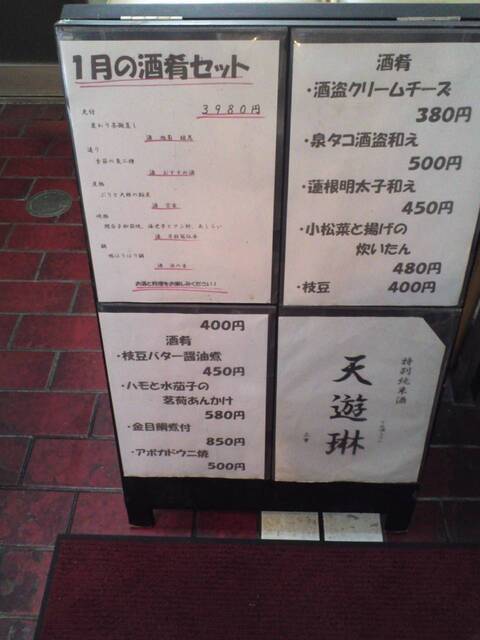 1月の酒肴セット
3980円
先付
変わり茶碗蒸し
造り
季節の魚二種
酒 おすすめ酒
煮物
ぶりと大根の粕煮
焼物
鍋
鴨はりはり鍋
お酒と料理をお楽しみください!
酒肴
・酒盗クリームチーズ
380円
・泉タコ酒盗和え
500円
・蓮根明太子和え
450円
・小松菜と揚げの
炊いたん
480円
・枝豆 400円
400円
酒肴
・枝豆バター醤油煮
450円
・ハモと水茄子の
茗荷あんかけ
580円
・金目鯛煮付
850円
・アボカドウニ焼
500円
特別純米酒
天遊琳
三重